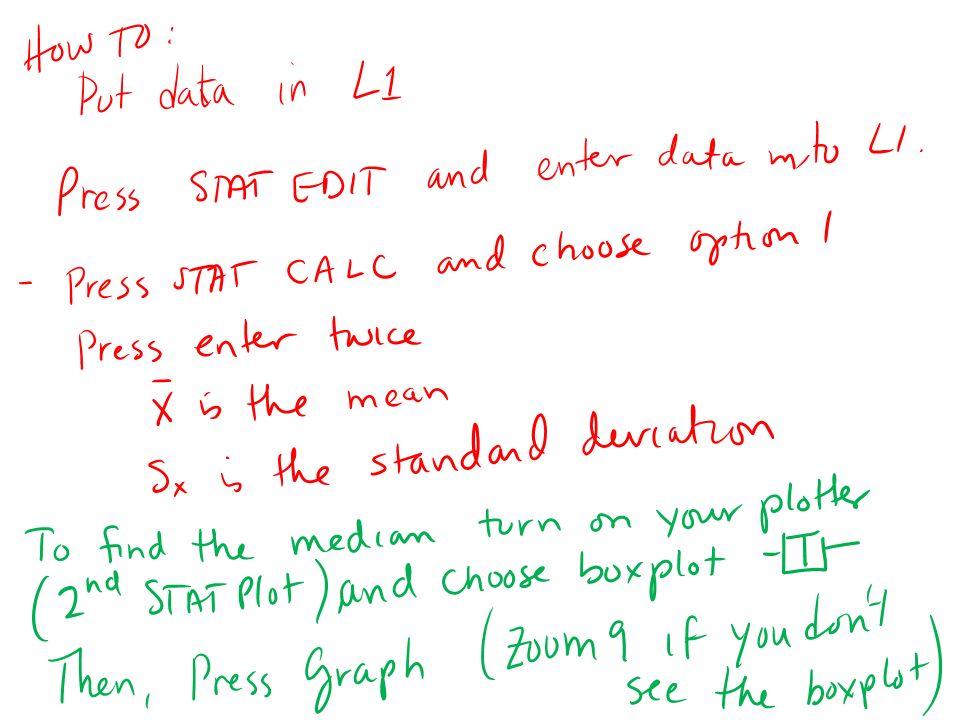 How TO:
Put data in L1
Press STAT EDIT and enter data into L1.
- Press STAT CALC and choose option 1
Press enter twice
x̄ is the mean
Sx is the standard deviation
To find the median turn on your plotter
(2nd STAT Plot) and choose boxplot
Then, Press Graph (Zoom 9 if you don't
see the boxplot)